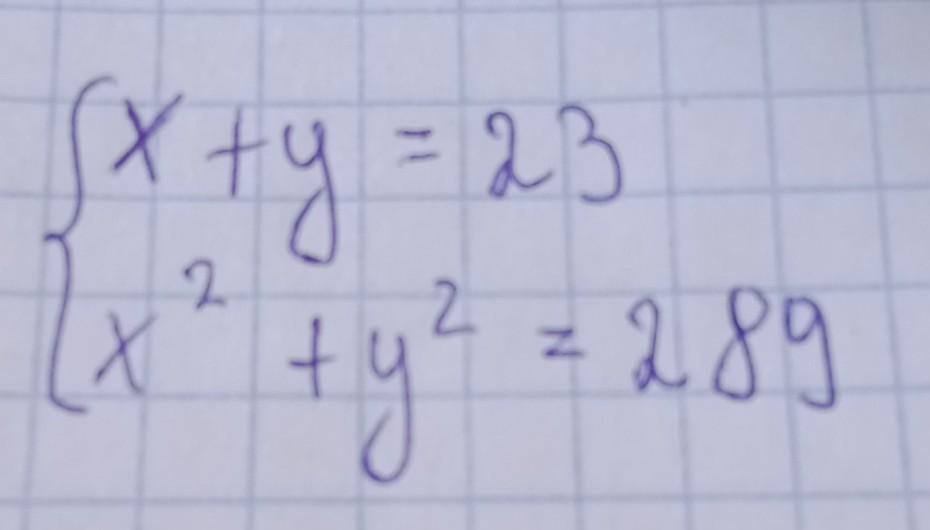 x + y = 23
x² + y² = 289